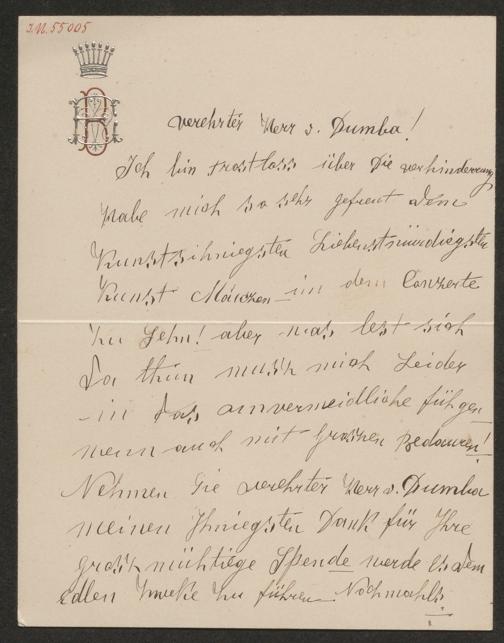 I.N. 55005
verehrter Herr v. Dumba!
Ich bin trostloss über Die verhinderung
Habe mich so sehr gefreut dem
Kunstsihniegsten Liebenstwürdiegsten
Kunst Mäuzen in dem Conzerte
zu Sehn! aber was lest sich
Da thun muss mich Leider
in das unvermeidliche fühgen
wenn auch mit Grossen Bedauren!
Nehmen Sie verehrter Herr v. Dumba
meinen Ihniegsten Dank für Ihre
grossmühtiege Spende werde Es dem
Edlen Zweke zu führen Nochmahls